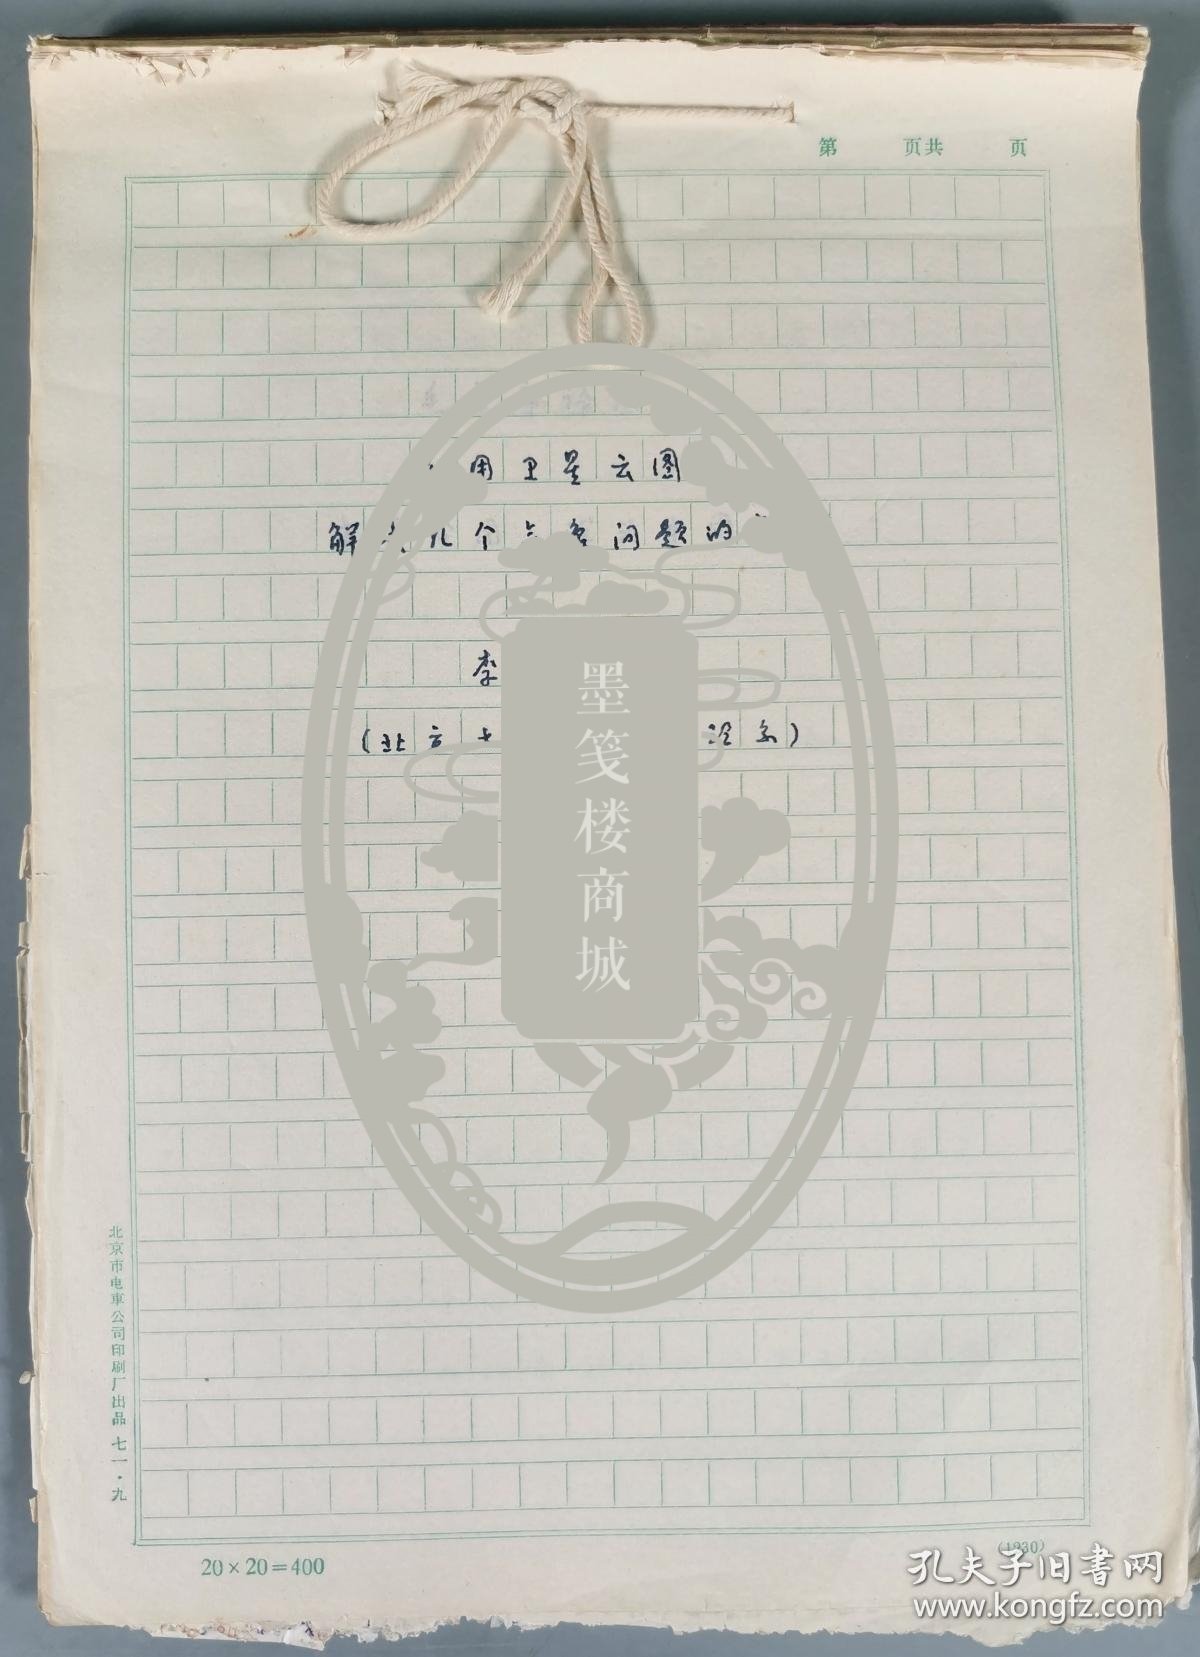 第 页共 页
用卫星云图
解 几个 问题的
李
(北京大
系)
墨笺楼商城
北京市电車公司印刷厂出品 七一·九
20×20=400
(1930)
孔夫子旧书网
www.kongfz.com